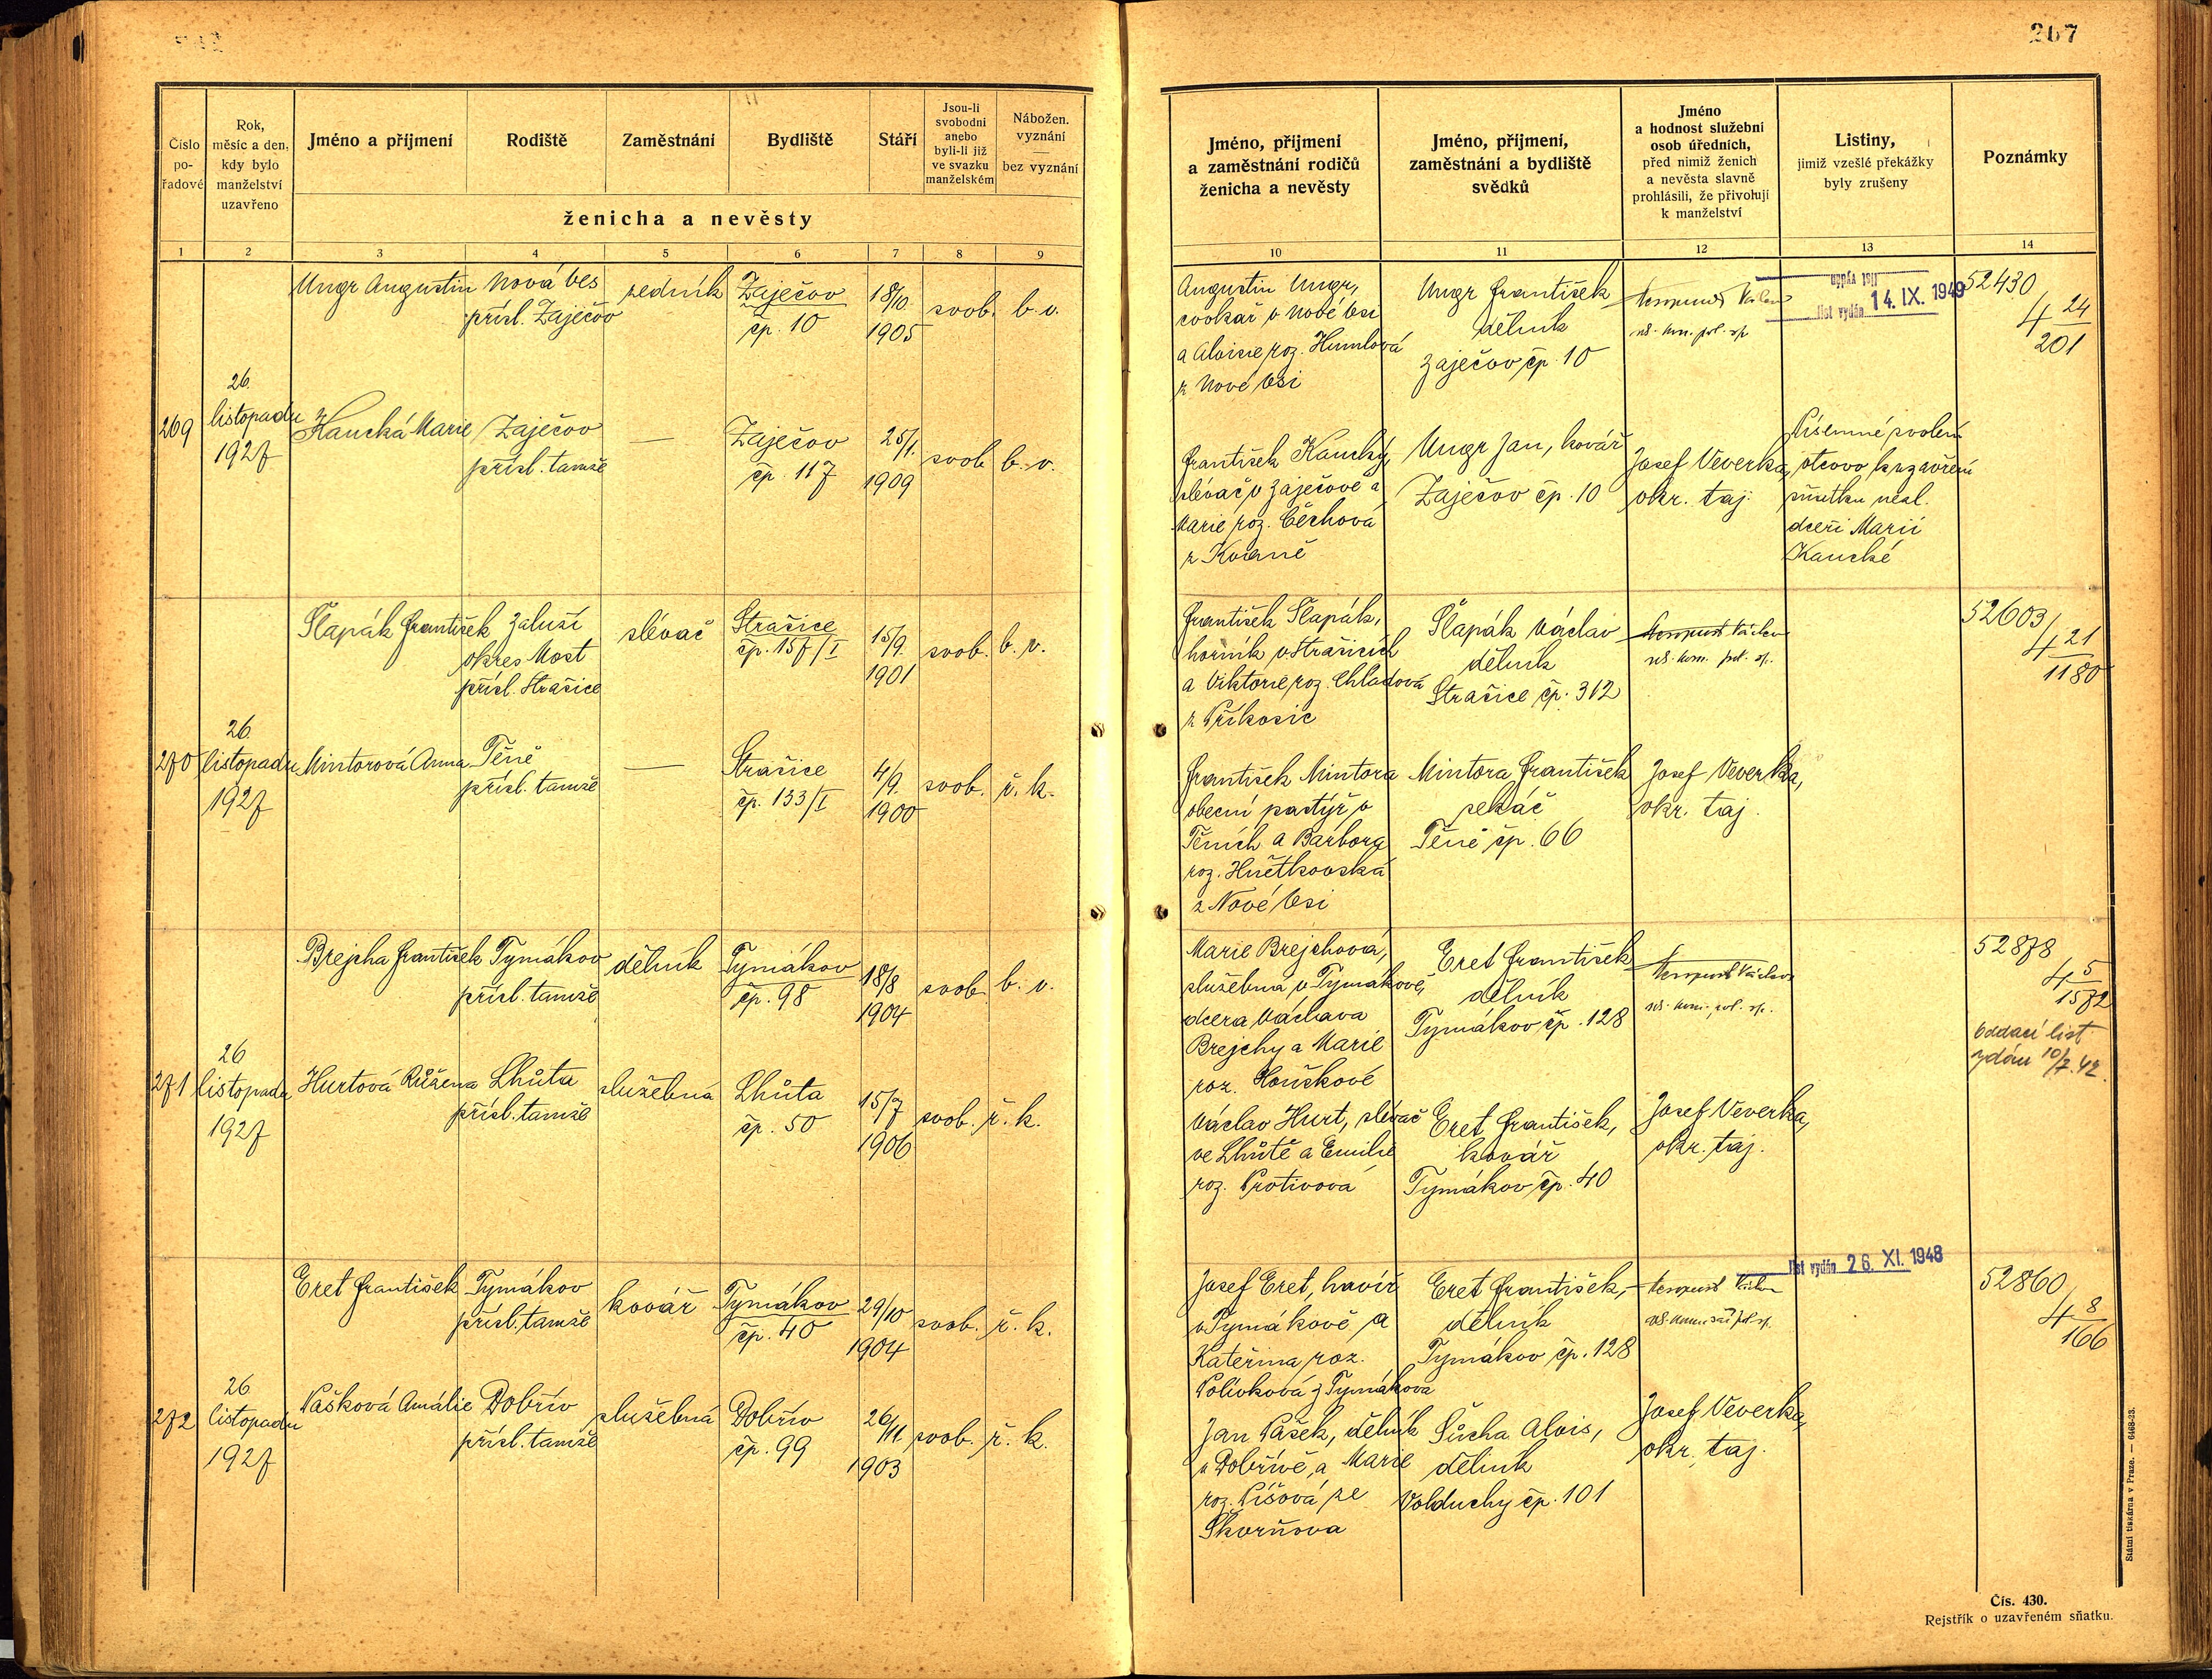 267
Číslo
po-
řadové
Rok,
měsíc a den,
kdy bylo
manželství
uzavřeno
Jméno a příjmení
Rodiště
Zaměstnání
Bydliště
Stáří
Jsou-li
svobodni
anebo
byli-li již
ve svazku
manželském
Nábožen.
vyznání
—
bez vyznání
ženicha a nevěsty
1 2 3 4 5 6 7 8 9
Ungr Augustin
Nová Ves
přísl. Zaječov
zedník
Zaječov
čp. 10
18/10.
1905
svob.
b. v.
269
26.
listopadu
1927
Kaucká Marie
Zaječov
přísl. tamže
—
Zaječov
čp. 117
25/1.
1909
svob.
b. v.
Šlapák František
Záluží
okres Most
přísl. Strašice
slévač
Strašice
čp. 157/I
15/9.
1901
svob.
b. v.
270
26.
listopadu
1927
Mintorová Anna
Těně
přísl. tamže
—
Strašice
čp. 133/I
4/9.
1900
svob.
ř. k.
Brejcha František
Tymákov
přísl. tamže
dělník
Tymákov
čp. 98
18/8
1904
svob.
b. v.
271
26
listopadu
1927
Hurtová Růžena
Lhůta
přísl. tamže
služebná
Lhůta
čp. 50
15/7
1906
svob.
ř. k.
Eret František
Tymákov
přísl. tamže
kovář
Tymákov
čp. 40
29/10
1904
svob.
ř. k.
272
26.
listopadu
1927
Pašková Amálie
Dobřív
přísl. tamže
služebná
Dobřív
čp. 99
26/11.
1903
svob.
ř. k.
Jméno, příjmení
a zaměstnání rodičů
ženicha a nevěsty
Jméno, příjmení,
zaměstnání a bydliště
svědků
Jméno
a hodnost služební
osob úředních,
před nimiž ženich
a nevěsta slavně
prohlásili, že přivolují
k manželství
Listiny,
jimiž vzešlé překážky
byly zrušeny
Poznámky
10 11 12 13 14
Augustin Ungr,
cvokař v Nové Vsi
a Aloisie roz. Humlová
z Nové Vsi
Ungr František
dělník
Zaječov čp. 10
Václav
rš. kom. pol. sp.
list vydán 14. IX. 1949
52430
4 24/201
František Kaucký,
slévač v Zaječově a
Marie roz. Čechová
z Kvaně
Ungr Jan, kovář
Zaječov čp. 10
Josef Veverka,
okr. taj.
Písemné svolení
otcovo k uzavření
sňatku nezl.
dceři Marii
Kaucké
František Šlapák,
horník v Strašicích
a Viktorie roz. Chladová
z Příkosic
Šlapák Václav
dělník
Strašice čp. 312
Václav
rš. kom. pol. sp.
52603
4 21/1180
František Mintora
obecní pastýř v
Těních a Barbora
roz. Hněťkovská
z Nové Vsi
Mintora František
sekáč
Těně čp. 66
Josef Veverka,
okr. taj.
Marie Brejchová,
služebná v Tymákově,
dcera Václava
Brejchy a Marie
roz. Houškové
Eret František
dělník
Tymákov čp. 128
Václav
rš. kom. pol. sp.
52878
4 5/1572
Oddací list
vydán 10/7. 42.
Václav Hurt, slévač
ve Lhůtě a Emilie
roz. Protivová
Eret František,
kovář
Tymákov čp. 40
Josef Veverka,
okr. taj.
Josef Eret, havíř
v Tymákově a
Kateřina roz.
Polívková z Tymákova
Eret František,
dělník
Tymákov čp. 128
rš. komisař pol. sp.
list vydán 26. XI. 1948
52860
4 8/166
Jan Pašek, dělník
v Dobřívě, a Marie
roz. Píšová ze
Škorňova
Sůcha Alois,
dělník
Volduchy čp. 101
Josef Veverka,
okr. taj.
Státní tiskárna v Praze. — 6468-23.
Čís. 430.
Rejstřík o uzavřeném sňatku.